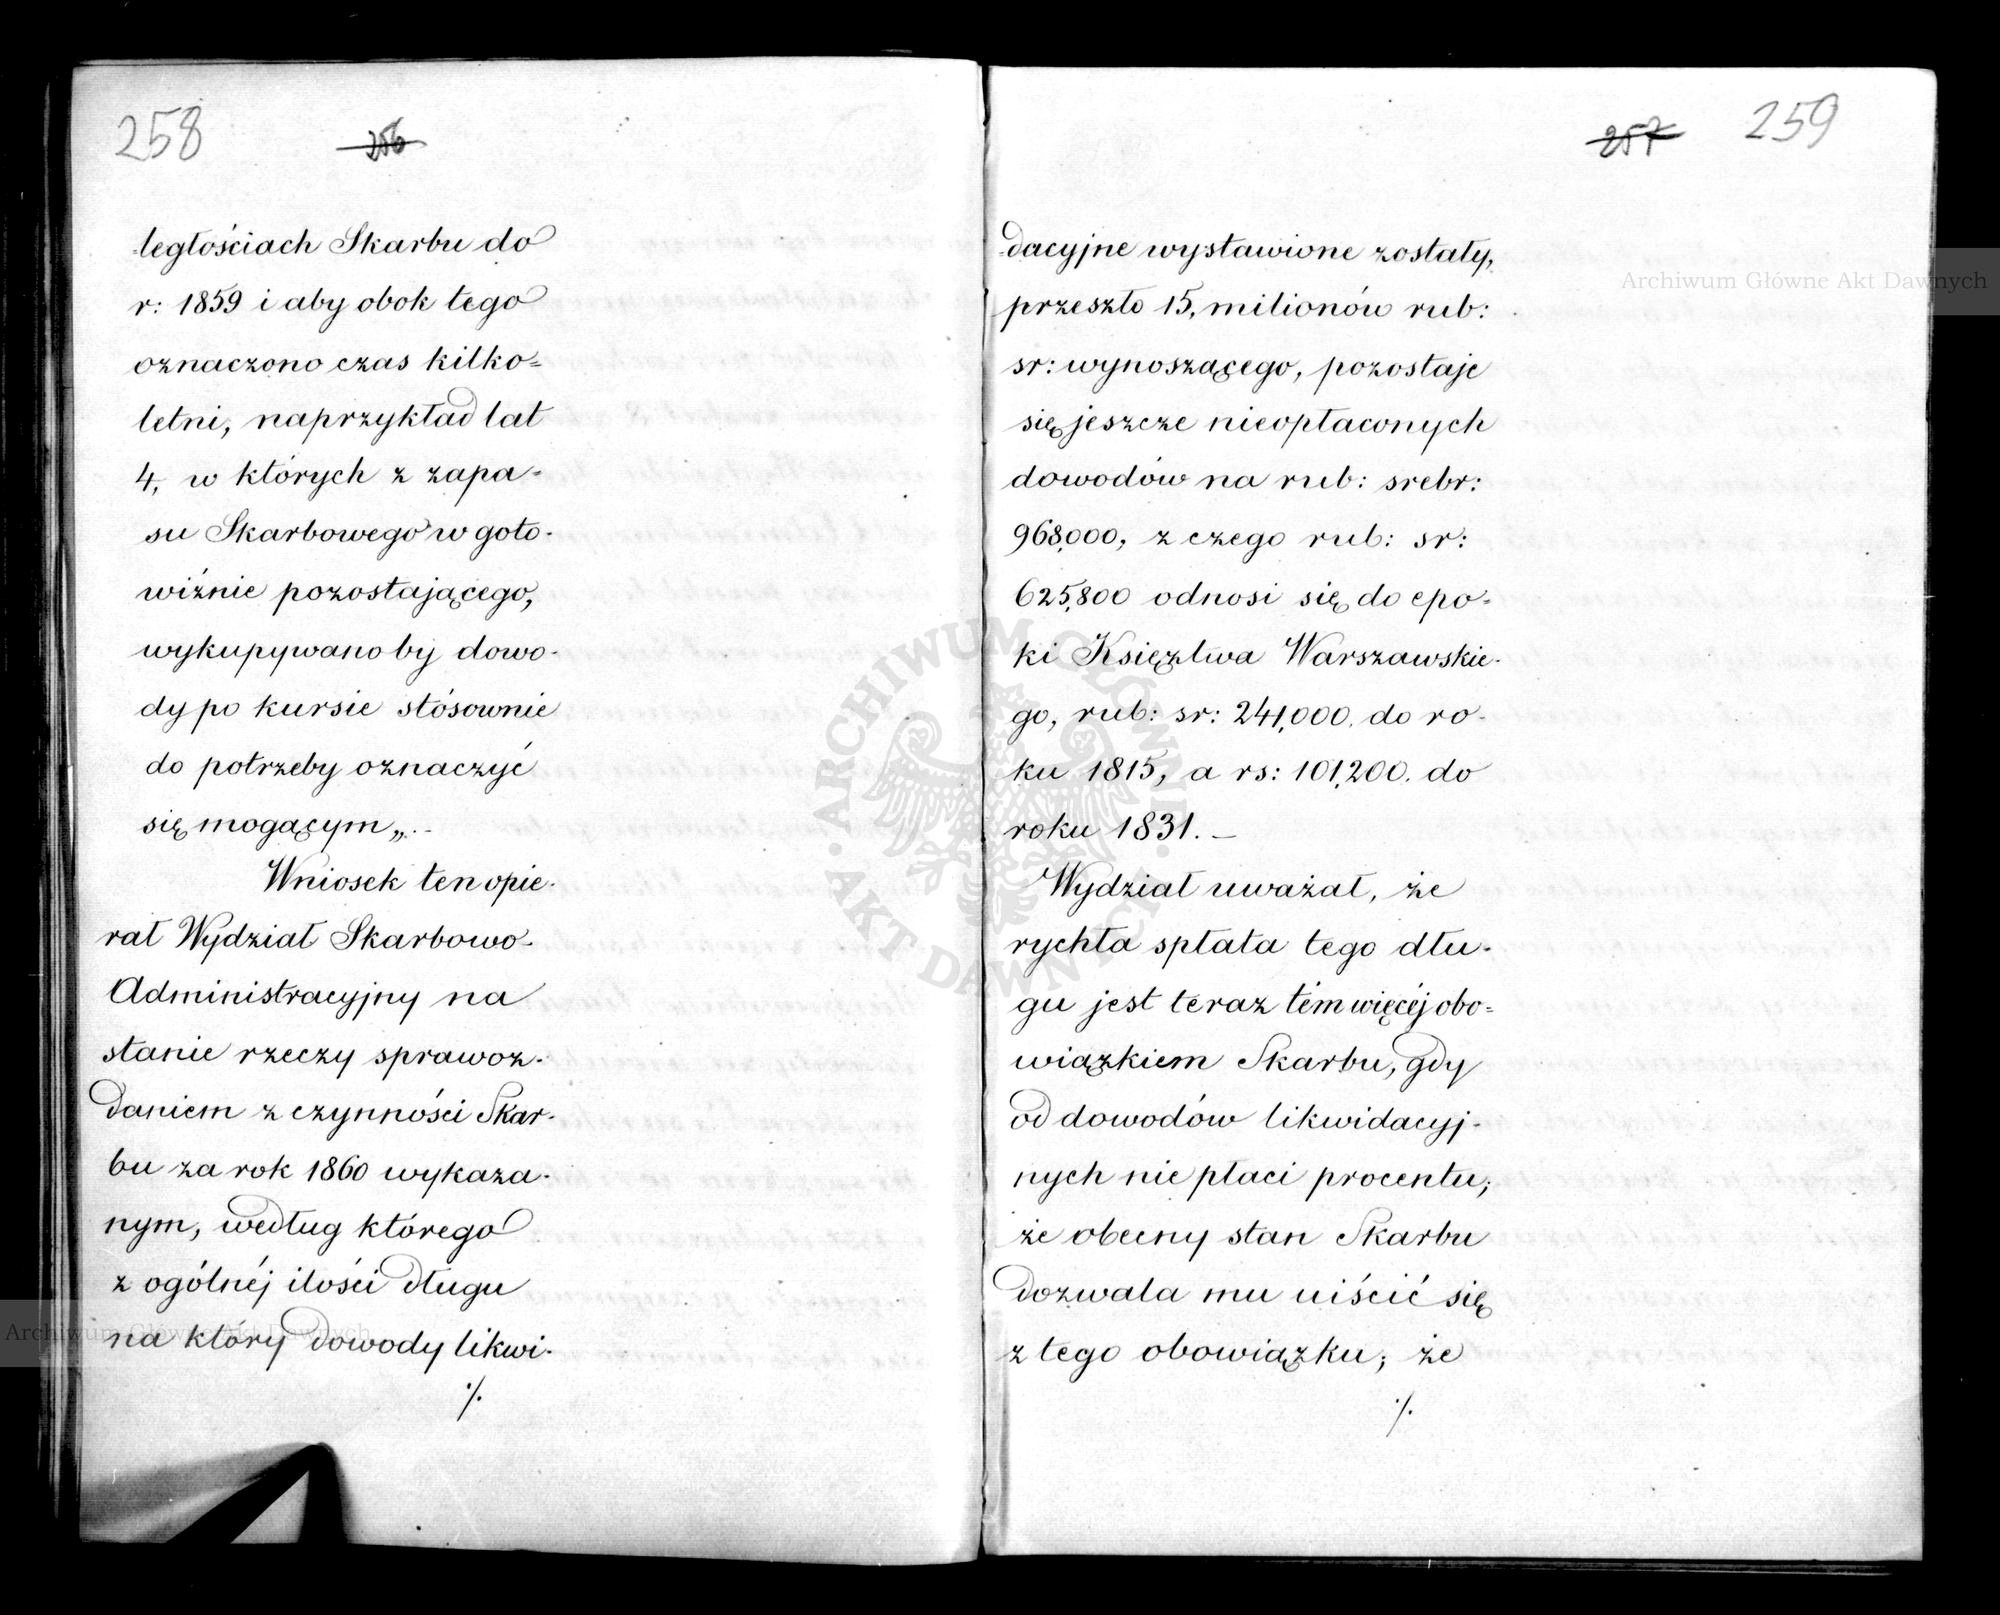 258
256
-ległościach Skarbu do
r: 1859 i aby obok tego
oznaczono czas kilko=
letni, naprzykład lat
4, w których z zapa-
su Skarbowego w goto-
wiźnie pozostającego,
wykupywano by dowo-
dy po kursie stósownie
do potrzeby oznaczyć
się mogącym„.-
Wniosek ten opie-
rał Wydział Skarbowo-
Administracyjny na
stanie rzeczy sprawoz-
daniem z czynności Skar-
bu za rok 1860 wykaza-
nym, według którego
z ogólnéj ilości długu
na który dowody likwi-
·/.
257
259
-dacyjne wystawione zostały,
przeszło 15, milionów rub:
sr: wynoszącego, pozostaje
się jeszcze nieopłaconych
dowodów na rub: srebr:
968,000, z czego rub: sr:
625,800 odnosi się do epo-
ki Księztwa Warszawskie-
go, rub: sr: 241,000. do ro-
ku 1815, a rs: 101,200. do
roku 1831. –
Wydział uważał, że
rychła spłata tego dłu-
gu jest teraz tém więcéj obo=
wiązkiem Skarbu, gdy
od dowodów likwidacyj-
nych nie płaci procentu;
że obecny stan Skarbu
dozwala mu uiścić się
z tego obowiązku; że
·/.
Archiwum Główne Akt Dawnych
Archiwum Główne Akt Dawnych
ARCHIWUM GŁÓWNE
AKT DAWNYCH